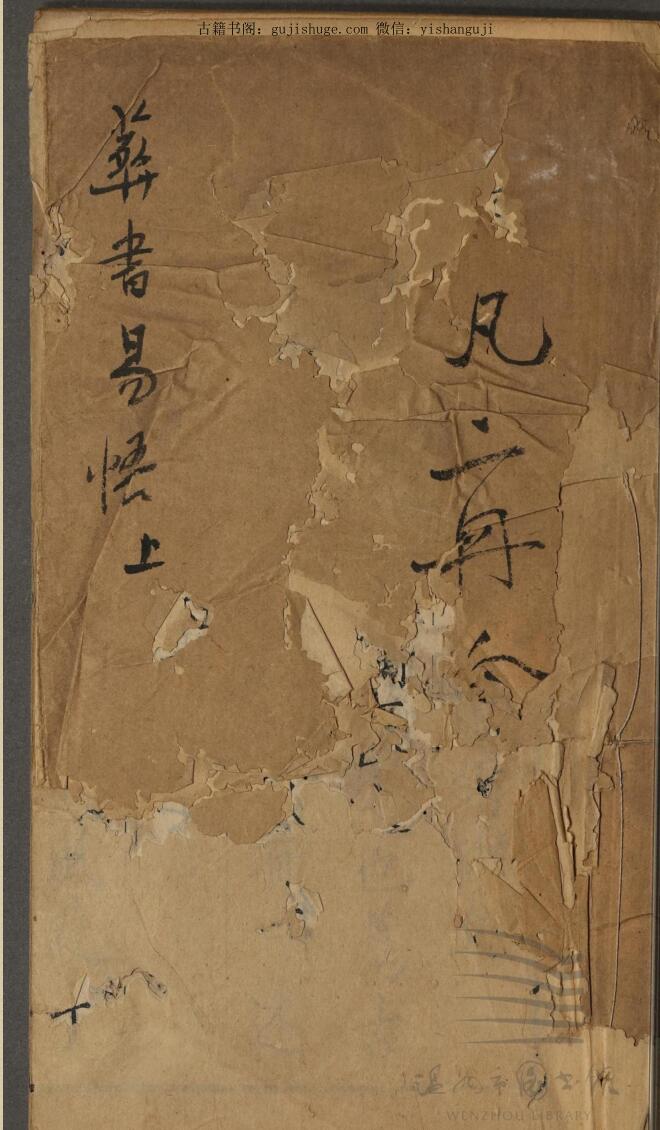 古籍书阁：gujishuge.com 微信：yishanguji
凡二冊
葬書易悟上
温州市图书馆
WENZHOU LIBRARY